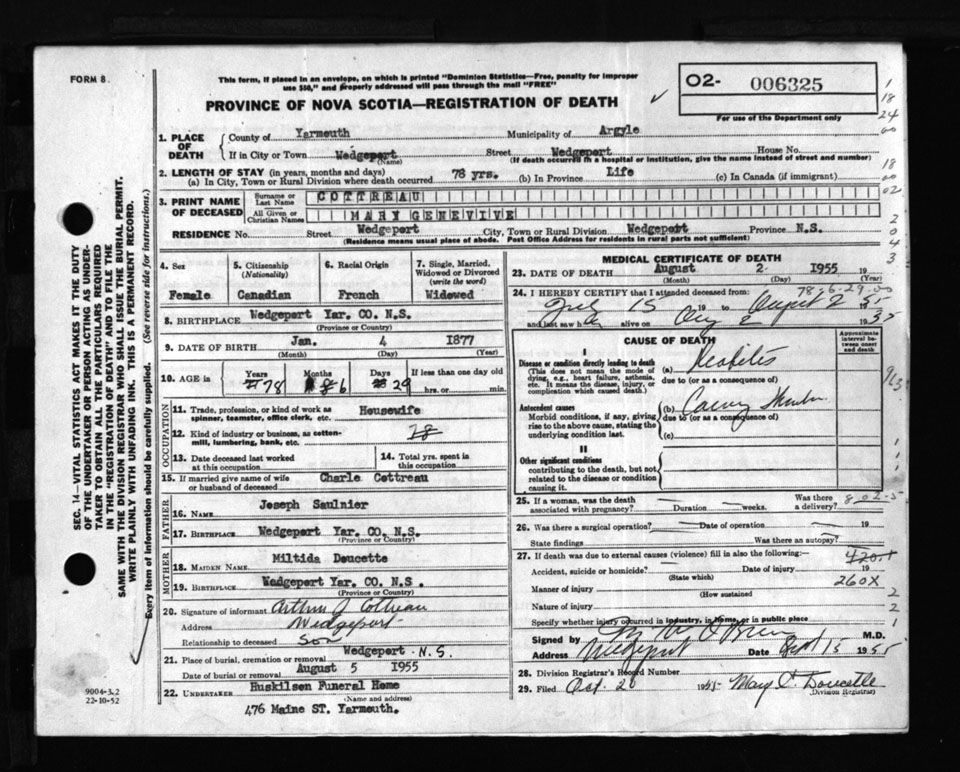 FORM 8.
This form, if placed in an envelope, on which is printed "Dominion Statistics—Free, penalty for improper
use $50," and properly addressed will pass through the mail "FREE"
PROVINCE OF NOVA SCOTIA—REGISTRATION OF DEATH
02- 006325
For use of the Department only
1. PLACE OF DEATH
County of Yarmouth Municipality of Argyle
If in City or Town Wedgeport Street Wedgeport House No.
(Name) (If death occurred in a hospital or institution, give the name instead of street and number)
2. LENGTH OF STAY (in years, months and days)
(a) In City, Town or Rural Division where death occurred 78 yrs. (b) In Province Life (c) In Canada (if immigrant)
3. PRINT NAME OF DECEASED
Surname or Last Name COTTREAU
All Given or Christian Names MARY GENEVIVE
RESIDENCE No. Street Wedgeport City or Town Wedgeport Province N.S.
(Residence means usual place of abode. Post Office Address for residents in rural parts not sufficient)
4. Sex
Female
5. Citizenship (Nationality)
Canadian
6. Racial Origin
French
7. Single, Married, Widowed or Divorced (write the word)
Widowed
8. BIRTHPLACE Wedgeport Yar. CO. N.S.
(Province or Country)
9. DATE OF BIRTH Jan. 4 1877
(Month) (Day) (Year)
10. AGE in Years Months Days If less than one day old
78 6 29 hrs. or min.
OCCUPATION
11. Trade, profession, or kind of work as spinner, teamster, office clerk, etc. Housewife
12. Kind of industry or business, as cotton-mill, lumbering, bank, etc. 78
13. Date deceased last worked at this occupation
14. Total yrs. spent in this occupation
15. If married give name of wife or husband of deceased Charle Cottreau
FATHER
16. NAME Joseph Saulnier
17. BIRTHPLACE Wedgeport Yar. CO. N.S.
(Province or Country)
MOTHER
18. MAIDEN NAME Miltida Doucette
19. BIRTHPLACE Wedgeport Yar. CO. N.S.
(Province or Country)
20. Signature of informant Arthur J Cottreau
Address Wedgeport
Relationship to deceased Son
21. Place of burial, cremation or removal Wedgeport N.S.
Date of burial or removal August 5 1955
22. UNDERTAKER Huskilson Funeral Home
(Name and address)
476 Maine ST. Yarmouth.
9004-3.2
22-10-52
MEDICAL CERTIFICATE OF DEATH
23. DATE OF DEATH August 2- 1955 19
(Month) (Day) (Year)
78-6-29-00
24. I HEREBY CERTIFY that I attended deceased from:
July 15 19 to August 2 55
and last saw h alive on Aug 2 1955
CAUSE OF DEATH
Approximate interval between onset and death
I
Disease or condition directly leading to death
(This does not mean the mode of dying, e.g., heart failure, asthenia, etc. It means the disease, injury, or complication which caused death.)
(a)
due to (or as a consequence of)
Antecedent causes
Morbid conditions, if any, giving rise to the above cause, stating the underlying condition last.
(b)
due to (or as a consequence of)
(c)
II
Other significant conditions
contributing to the death, but not related to the disease or condition causing it.
25. If a woman, was the death associated with pregnancy? Duration weeks. Was there a delivery?
802-5
26. Was there a surgical operation? Date of operation 19
State findings Was there an autopsy?
27. If death was due to external causes (violence) fill in also the following:
4201
Accident, suicide or homicide? Date of injury 19
(State which)
Manner of injury 260X
(How sustained)
Nature of injury
Specify whether injury occurred in industry, in home, or in public place
Signed by O'Brien M.D.
Address Wedgeport Date Sept 15 1955
28. Division Registrar's Record Number
29. Filed Oct. 20 1955 Mary C. Doucette
(Division Registrar)
SEC. 14—VITAL STATISTICS ACT MAKES IT THE DUTY
OF THE UNDERTAKER OR PERSON ACTING AS UNDER-
TAKER TO OBTAIN ALL THE PARTICULARS REQUIRED
IN THE "REGISTRATION OF DEATH" AND TO FILE THE
SAME WITH THE DIVISION REGISTRAR WHO SHALL ISSUE THE BURIAL PERMIT.
WRITE PLAINLY WITH UNFADING INK. THIS IS A PERMANENT RECORD.
Every item of information should be carefully supplied. (See reverse side for instructions.)